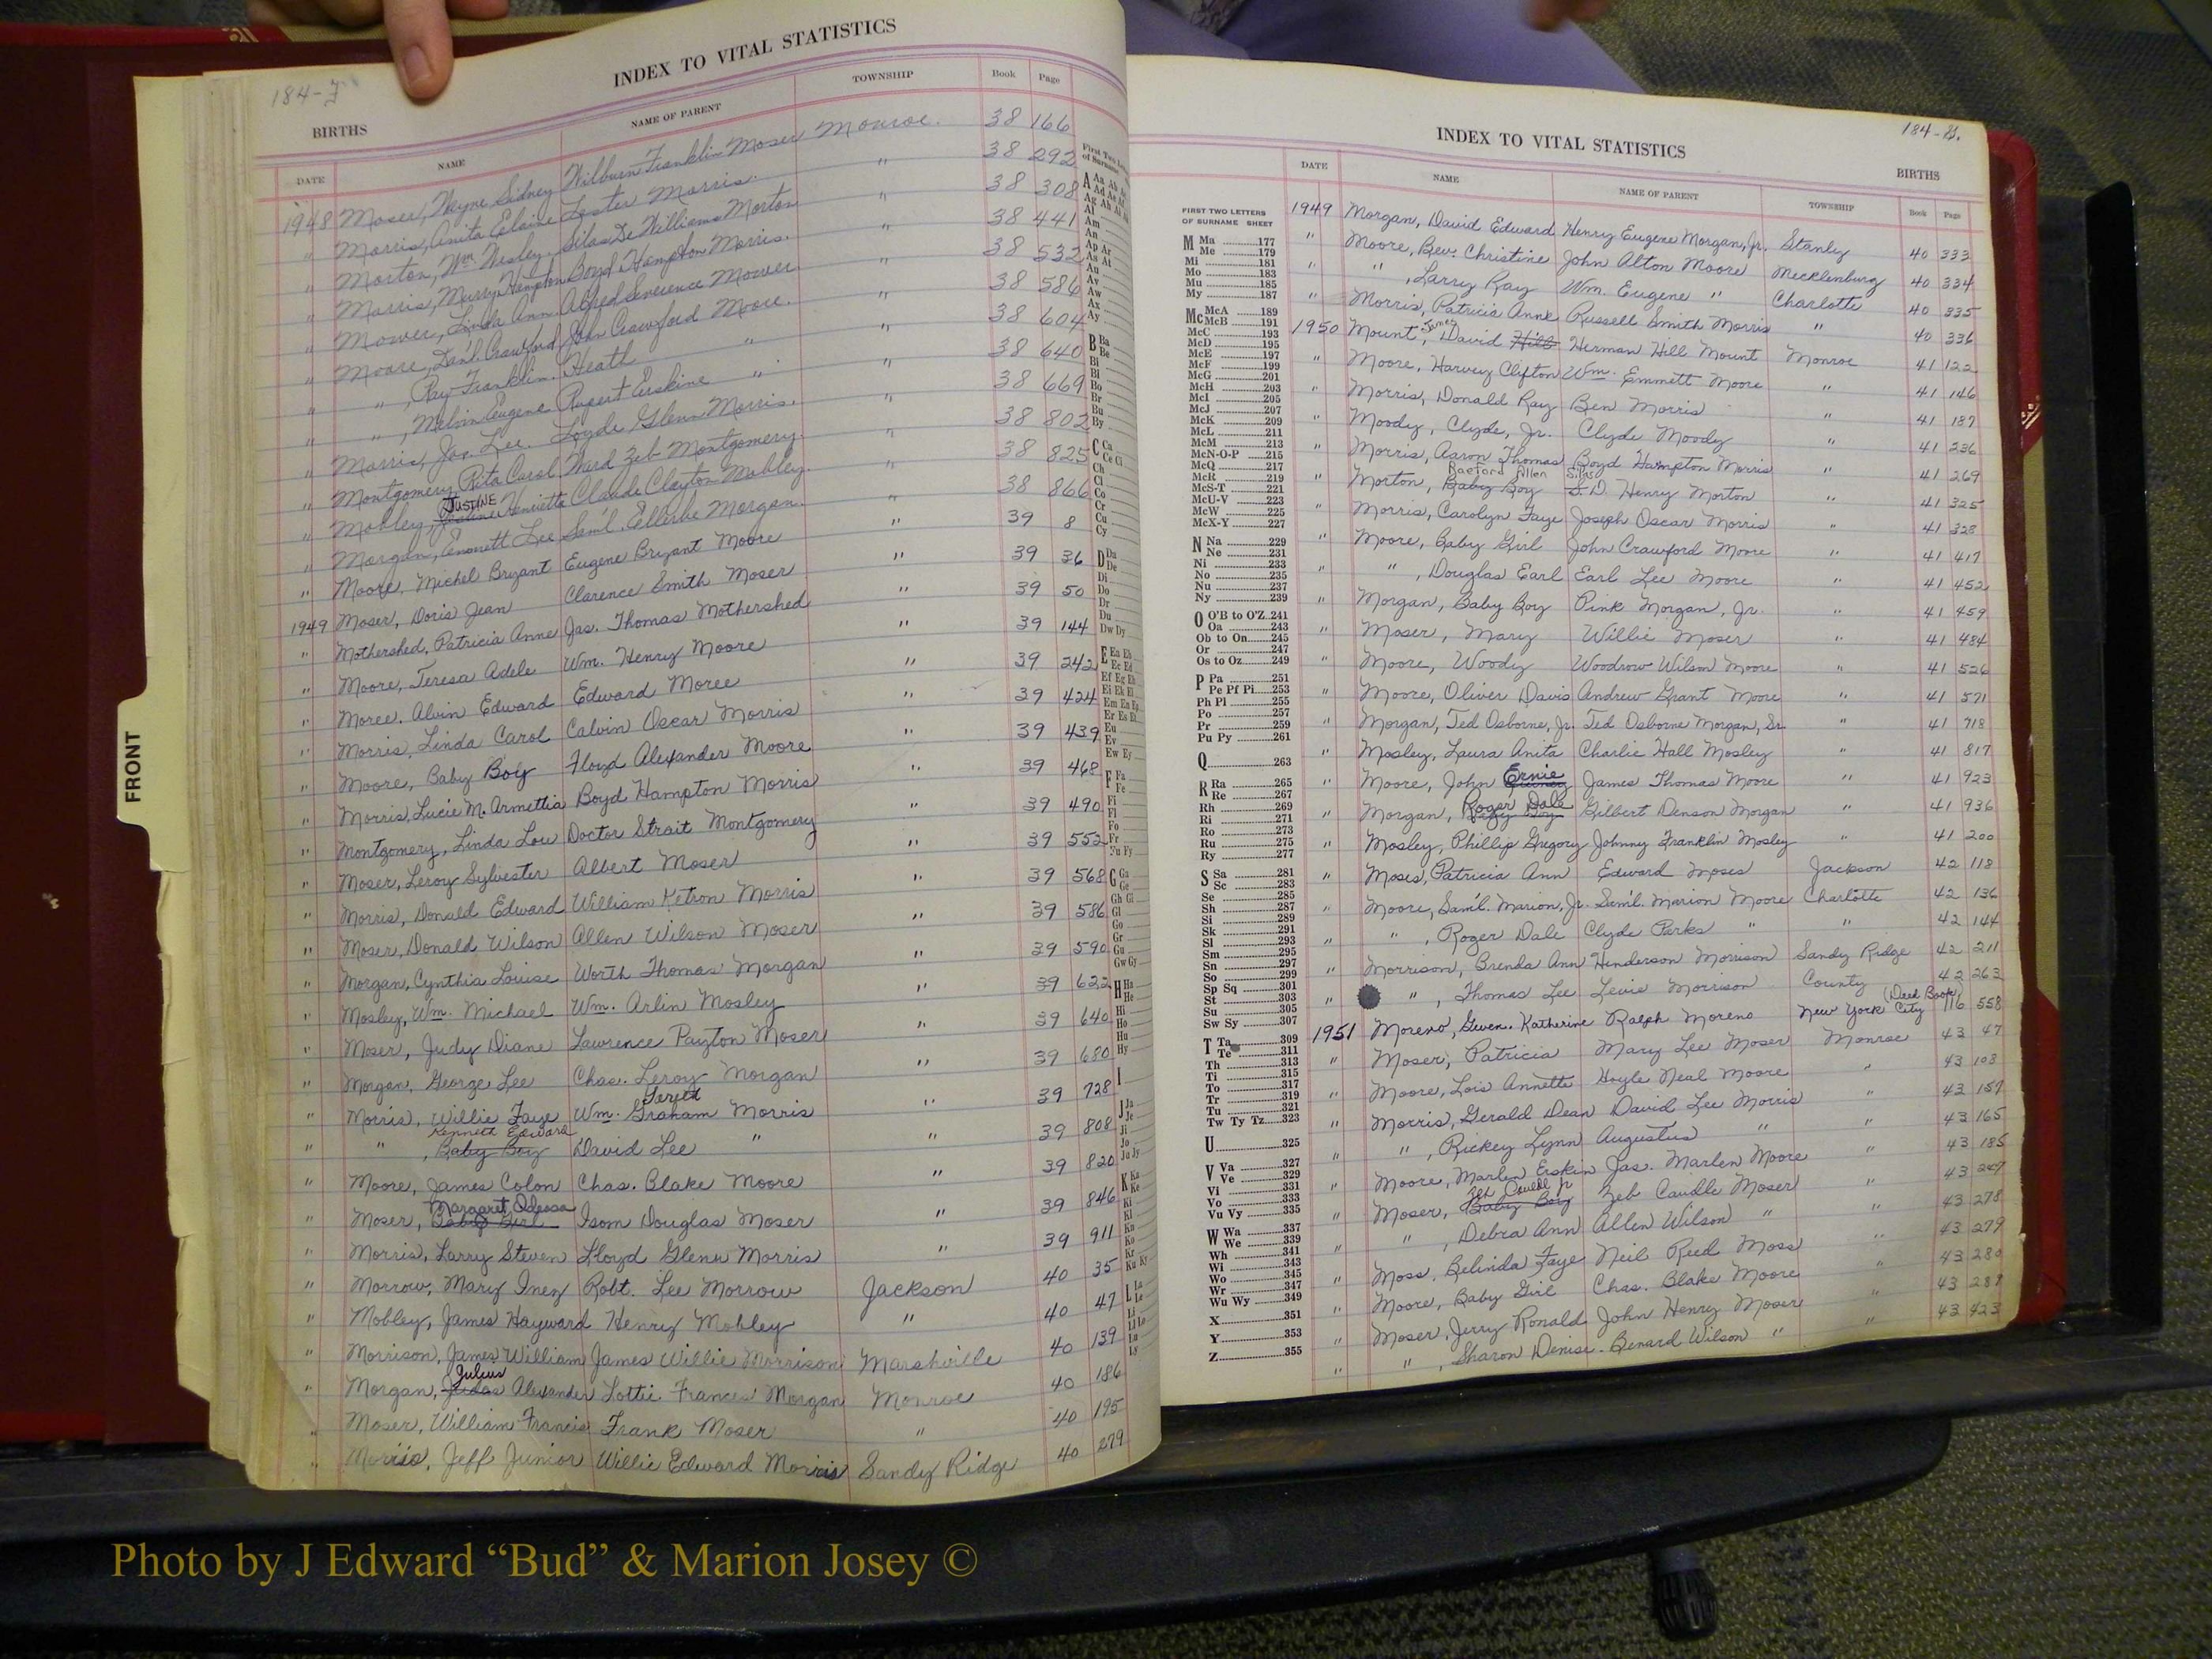 184-F
INDEX TO VITAL STATISTICS
BIRTHS
DATE NAME NAME OF PARENT TOWNSHIP Book Page
1948 Moser, Wayne Sidney Wilburn Franklin Moser Monroe. 38 166
" Morris, Anita Elaine Lester Morris. " 38 292
" Morton, Wm. Wesley. Silas De Williams Morton 38 308
" Morris, Murry Hampton Boyd Hampton Morris. " 38 441
" Mower, Linda Ann. Alfred Severence Mower 38 532
" Moore, Danl. Crawford John Crawford Moore. " 38 586
" " , Ray Franklin. Heath " " 38 604
" " , Melvin Eugene Rupert Erskine " " 38 640
" Morris, Jas. Lee. Loyde Glenn Morris. " 38 669
" Montgomery, Rita Carol Ward Zeb Montgomery. " 38 802
" Mobley, Justine Henrietta Claude Clayton Mobley. " 38 825
" Morgan, Emmett Lee Saml. Ellerbe Morgan. " 38 866
" Moore, Michel Bryant Eugene Bryant Moore " 39 8
1949 Moser, Doris Jean Clarence Smith Moser " 39 36
" Mothershed, Patricia Anne Jas. Thomas Mothershed " 39 50
" Moore, Teresa Adele Wm. Henry Moore " 39 144
" Moree, Alvin Edward Edward Moree " 39 242
" Morris, Linda Carol Calvin Oscar Morris " 39 424
" Moore, Baby Boy Floyd Alexander Moore " 39 439
" Morris, Lucie M. Armettia Boyd Hampton Morris " 39 468
" Montgomery, Linda Lou Doctor Strait Montgomery " 39 490
" Moser, Leroy Sylvester Albert Moser " 39 552
" Morris, Donald Edward William Ketron Morris " 39 568
" Moser, Donald Wilson Allen Wilson Moser " 39 586
" Morgan, Cynthia Louise Worth Thomas Morgan " 39 590
" Mosley, Wm. Michael Wm. Arlin Mosley " 39 622
" Moser, Judy Diane Lawrence Payton Moser " 39 640
" Morgan, George Lee Chas. Leroy Morgan " 39 680
" Morris, Willie Faye Wm. Graham Morris " 39 728
Kenneth Edward
" " , Baby Boy David Lee " " 39 808
" Moore, James Colon Chas. Blake Moore " 39 820
Margaret Odessa
" Moser, Baby Girl Isom Douglas Moser " 39 846
" Morris, Larry Steven Lloyd Glenn Morris " 39 911
" Morrow, Mary Inez Robt. Lee Morrow Jackson 40 35
" Mobley, James Hayward Henry Mobley " 40 47
" Morrison, James William James Willie Morrison Marshville 40 139
Julius
" Morgan, Judas Alexander Lottie Frances Morgan Monroe 40 186
" Moser, William Francis Frank Moser " 40 195
" Morris, Jeff Junior Willie Edward Morris Sandy Ridge 40 279
FRONT
184-G.
INDEX TO VITAL STATISTICS
BIRTHS
DATE NAME NAME OF PARENT TOWNSHIP Book Page
1949 Morgan, David Edward Henry Eugene Morgan, Jr. Stanly 40 333
" Moore, Bev. Christine John Alton Moore Mecklenburg 40 334
" " , Larry Ray Wm. Eugene " Charlotte 40 335
" Morris, Patricia Anne Russell Smith Morris " 40 336
James
1950 Mount, David Hill Herman Hill Mount Monroe 41 122
" Moore, Harvey Clifton Wm. Emmett Moore " 41 146
" Morris, Donald Ray Ben Morris " 41 187
" Moody, Clyde, Jr. Clyde Moody " 41 236
" Morris, Aaron Thomas Boyd Hampton Morris " 41 269
Raeford Allen Silas
" Morton, Baby Boy S.D. Henry Morton " 41 325
" Morris, Carolyn Faye Joseph Oscar Morris " 41 328
" Moore, Baby Girl John Crawford Moore " 41 417
" " , Douglas Earl Earl Lee Moore " 41 452
" Morgan, Baby Boy Pink Morgan, Jr. " 41 459
" Moser, Mary Willie Moser " 41 484
" Moore, Woody Woodrow Wilson Moore " 41 526
" Moore, Oliver Davis Andrew Grant Moore " 41 571
" Morgan, Ted Osborne, Jr. Ted Osborne Morgan, Sr. " 41 718
" Mosley, Laura Anita Charlie Hall Mosley " 41 817
" Moore, John Ernie James Thomas Moore " 41 923
Roger Dale
" Morgan, Baby Boy Gilbert Denson Morgan " 41 936
" Mosley, Phillip Gregory Johnny Franklin Mosley " 41 200
" Moses, Patricia Ann Edward Moses Jackson 42 118
" Moore, Saml. Marion, Jr. Saml. Marion Moore Charlotte 42 136
" " , Roger Dale Clyde Parks " " 42 144
" Morrison, Brenda Ann Henderson Morrison Sandy Ridge 42 211
" " , Thomas Lee Levie Morrison County 42 263
1951 Moreno, Gwen. Katherine Ralph Moreno New York City (Deed Book) 116 558
" Moser, Patricia Mary Lee Moser Monroe 43 47
" Moore, Lois Annette Hoyle Neal Moore " 43 103
" Morris, Gerald Dean David Lee Morris " 43 157
" " , Rickey Lynn Augustus " " 43 165
" Moore, Marlen Erskin Jas. Marlen Moore " 43 185
Zeb Caudle Jr
" Moser, Baby Boy Zeb Caudle Moser " 43 247
" " , Debra Ann Allen Wilson " " 43 278
" Moss, Belinda Faye Neil Reed Moss " 43 279
" Moore, Baby Girl Chas. Blake Moore " 43 280
" Moser, Jerry Ronald John Henry Moser " 43 287
" " , Sharon Denise. Benard Wilson " " 43 423
FIRST TWO LETTERS
OF SURNAME SHEET
M Ma 177
Me 179
Mi 181
Mo 183
Mu 185
My 187
Mc McA 189
McB 191
McC 193
McD 195
McE 197
McF 199
McG 201
McH 203
McI 205
McJ 207
McK 209
McL 211
McM 213
McN-O-P 215
McQ 217
McR 219
McS-T 221
McU-V 223
McW 225
McX-Y 227
N Na 229
Ne 231
Ni 233
No 235
Nu 237
Ny 239
O O'B to O'Z 241
Oa 243
Ob to On 245
Or 247
Os to Oz 249
P Pa 251
Pe Pf Pi 253
Ph Pl 255
Po 257
Pr 259
Pu Py 261
Q 263
R Ra 265
Re 267
Rh 269
Ri 271
Ro 273
Ru 275
Ry 277
S Sa 281
Sc 283
Se 285
Sh 287
Si 289
Sk 291
Sl 293
Sm 295
Sn 297
So 299
Sp Sq 301
St 303
Su 305
Sw Sy 307
T Ta 309
Te 311
Th 313
Ti 315
To 317
Tr 319
Tu 321
Tw Ty Tz 323
U 325
V Va 327
Ve 329
Vi 331
Vo 333
Vu Vy 335
W Wa 337
We 339
Wh 341
Wi 343
Wo 345
Wr 347
Wu Wy 349
X 351
Y 353
Z 355
Photo by J Edward “Bud” & Marion Josey ©